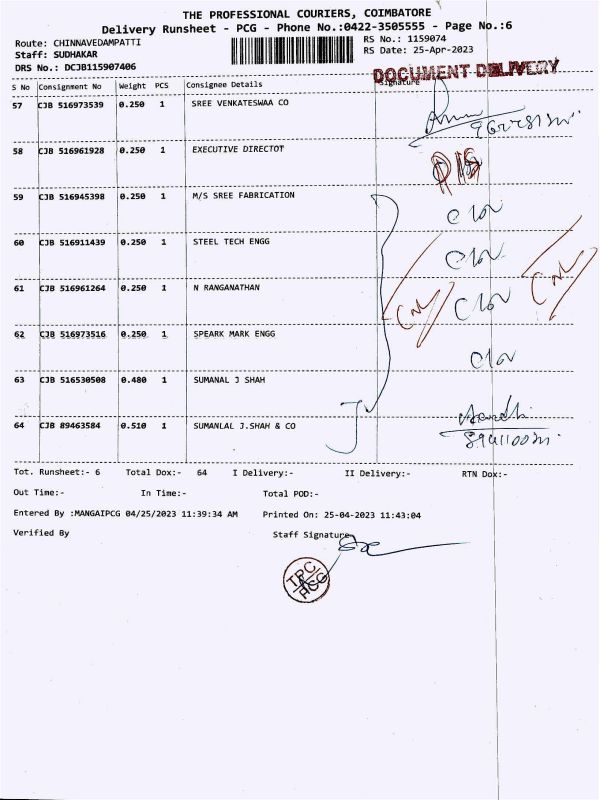 THE PROFESSIONAL COURIERS, COIMBATORE
Delivery Runsheet - PCG - Phone No.:0422-3505555 - Page No.:6
Route: CHINNAVEDAMPATTI RS No.: 1159074
Staff: SUDHAKAR RS Date: 25-Apr-2023
DRS No.: DCJB115907406
DOCUMENT DELIVERY
S No Consignment No Weight PCS Consignee Details Signature
57 CJB 516973539 0.250 1 SREE VENKATESWAA CO
58 CJB 516961928 0.250 1 EXECUTIVE DIRECTOT
59 CJB 516945398 0.250 1 M/S SREE FABRICATION
60 CJB 516911439 0.250 1 STEEL TECH ENGG
61 CJB 516961264 0.250 1 N RANGANATHAN
62 CJB 516973516 0.250 1 SPEARK MARK ENGG
63 CJB 516530508 0.480 1 SUMANAL J SHAH
64 CJB 89463584 0.510 1 SUMANLAL J.SHAH & CO
Tot. Runsheet:- 6 Total Dox:- 64 I Delivery:- II Delivery:- RTN Dox:-
Out Time:- In Time:- Total POD:-
Entered By :MANGAIPCG 04/25/2023 11:39:34 AM Printed On: 25-04-2023 11:43:04
Verified By Staff Signature
TPC
PCG